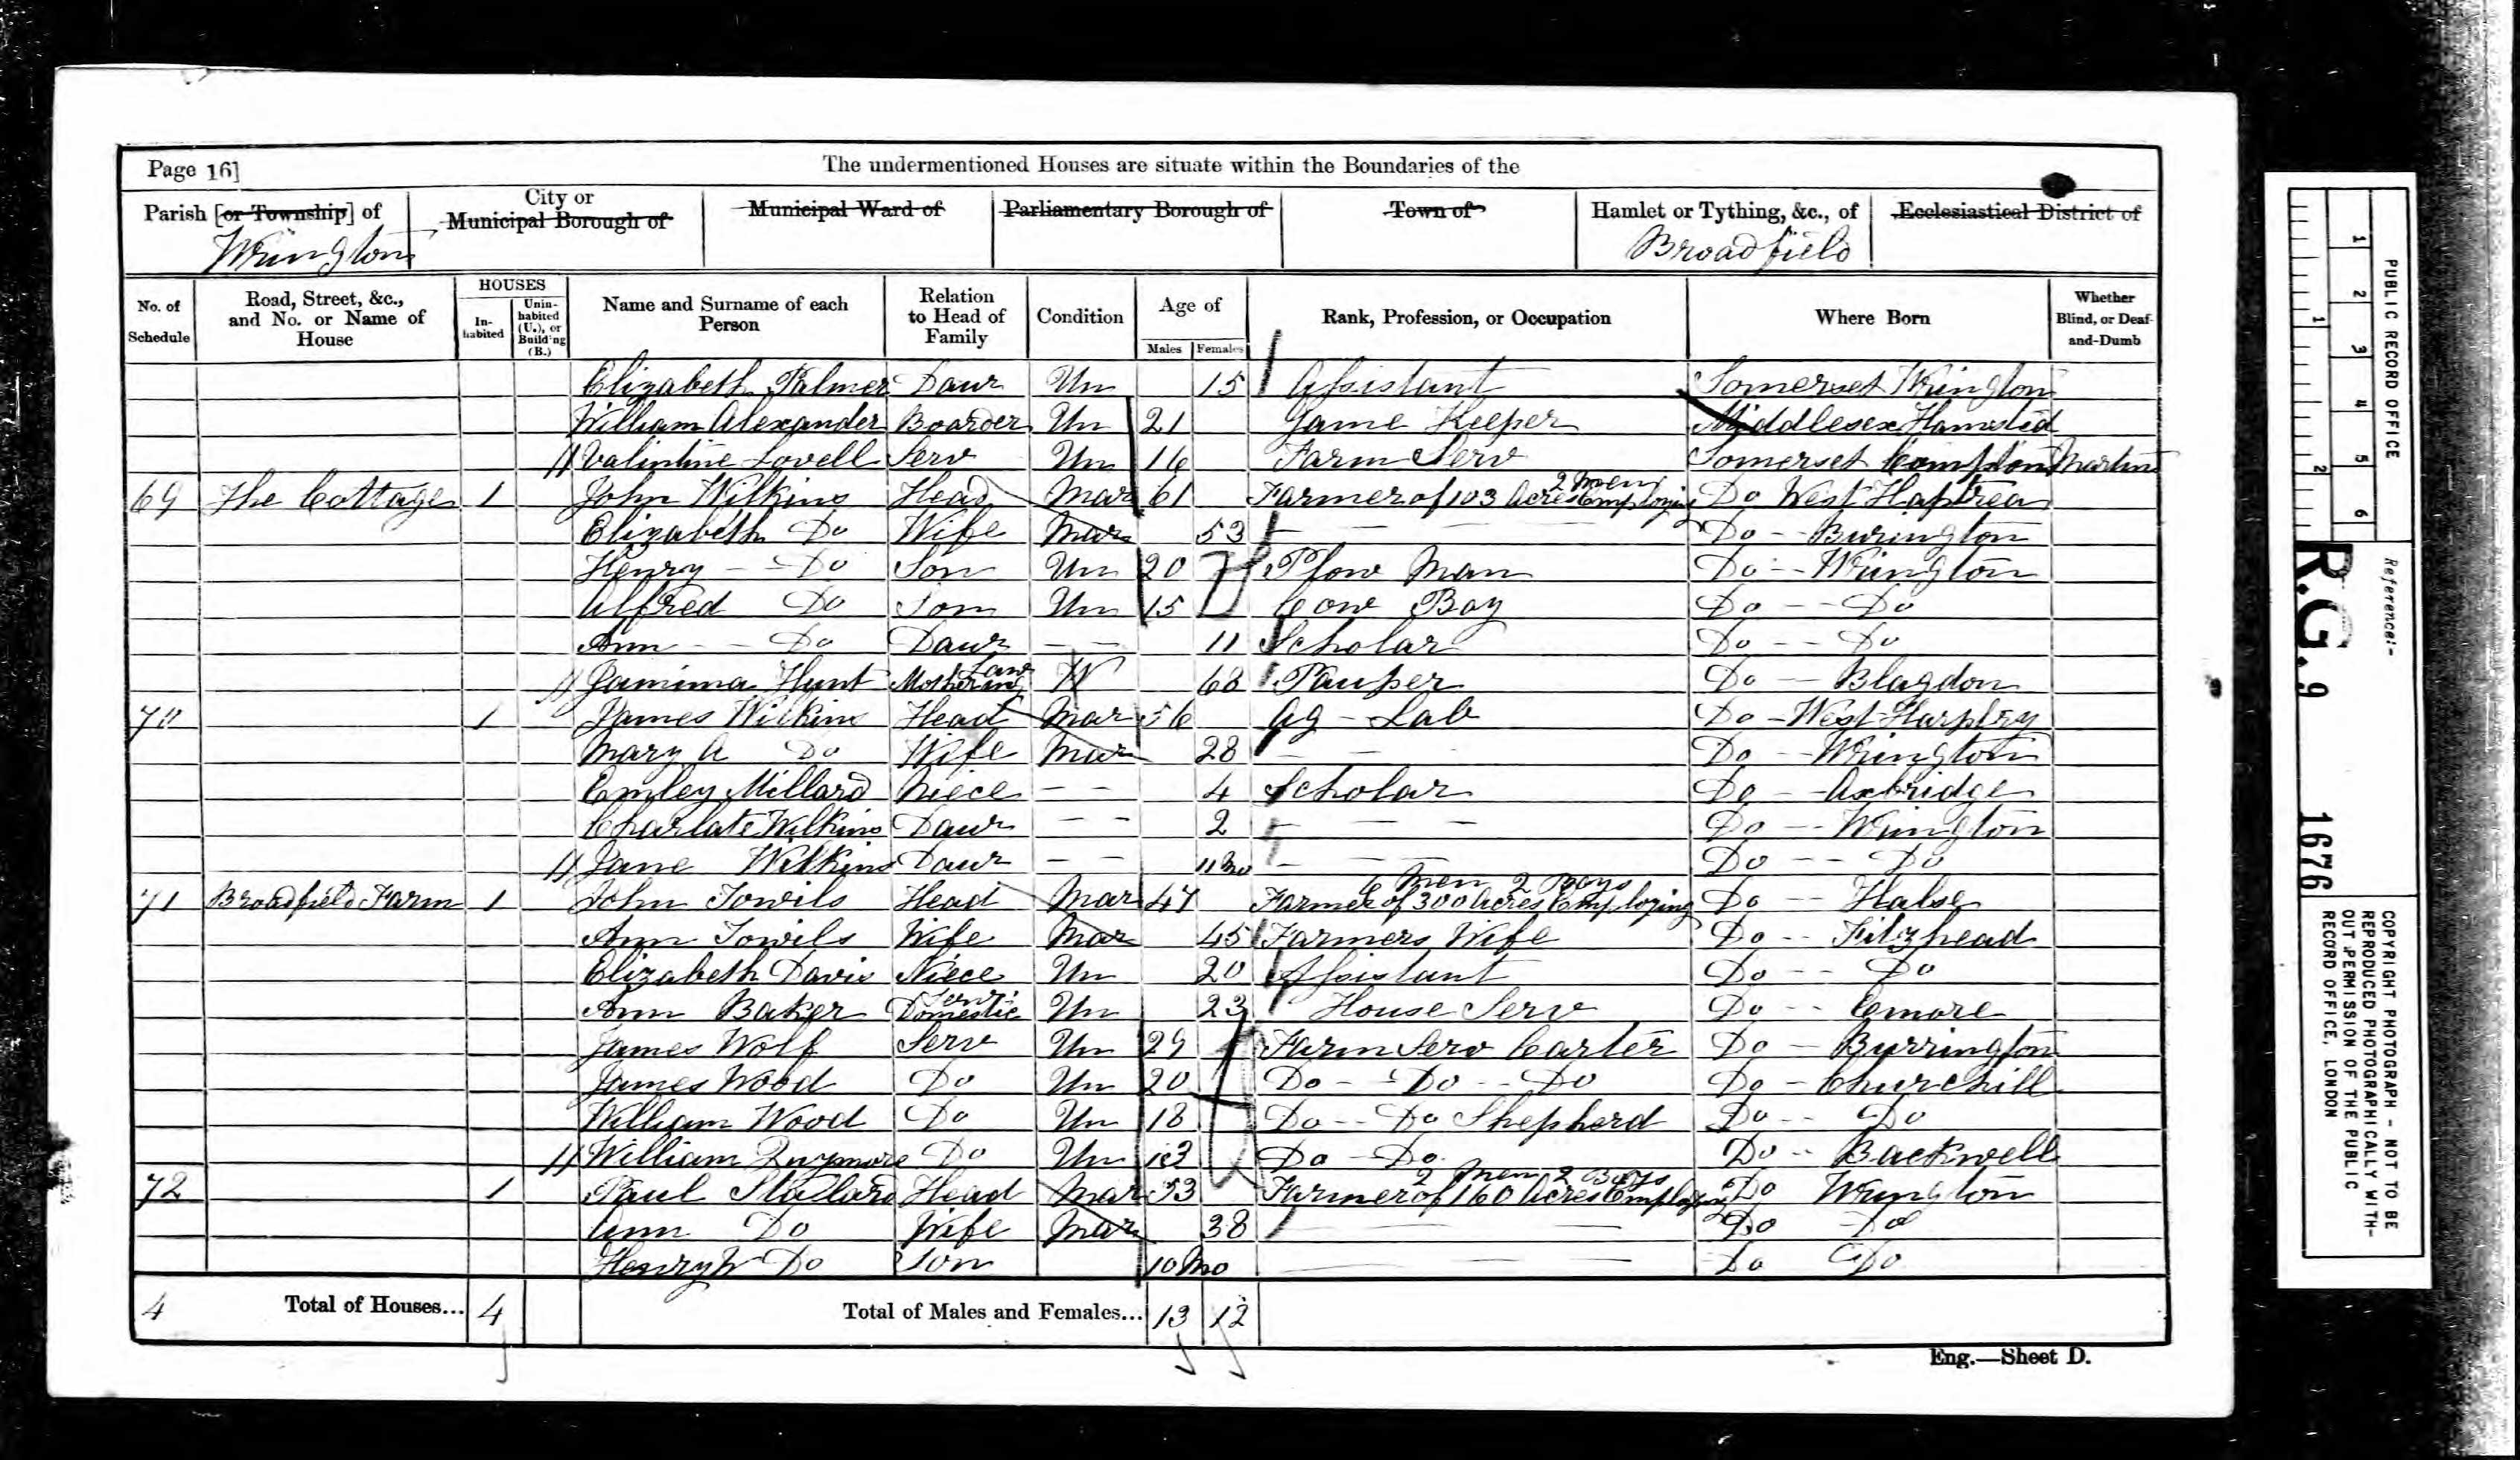 Page 16]
The undermentioned Houses are situate within the Boundaries of the
Parish [or Township] of Wrington
City or Municipal Borough of
Municipal Ward of
Parliamentary Borough of
Town of
Hamlet or Tything, &c., of Broadfield
Ecclesiastical District of
No. of Schedule
Road, Street, &c., and No. or Name of House
HOUSES
In-habited
Unin-habited (U.), or Build'ng (B.)
Name and Surname of each Person
Relation to Head of Family
Condition
Age of
Males Females
Rank, Profession, or Occupation
Where Born
Whether Blind, or Deaf-and-Dumb
Elizabeth Palmer Daur Un 15 Assistant Somerset Wrington
William Alexander Boarder Un 21 Game Keeper Middlesex Hamsted
Valintine Lovell Serv Un 16 Farm Serv Somerset Compton Martin
69 The Cottage 1 John Wilkins Head Mar 61 Farmer of 103 Acres Employing 2 Men Do West Haptrea
Elizabeth Do Wife Mar 53 Do Burington
Henry Do Son Un 20 Plow Man Do Wrington
Alfred Do Son Un 15 Cow Boy Do Do
Ann Do Daur 11 Scholar Do Do
Jamima Hunt Mother in Law W 68 Pauper Do Blagdon
70 1 James Wilkins Head Mar 56 Ag Lab Do West Harptry
Mary A Do Wife Mar 28 Do Wrington
Emley Millard Niece 4 Scholar Do Axbridge
Charlate Wilkins Daur 2 Do Wrington
Jane Wilkins Daur 11 Mo Do Do
71 Broadfield Farm 1 John Towils Head Mar 47 Farmer of 300 Acres Employing 6 Men 2 Boys Do Halse
Ann Towils Wife Mar 45 Farmers Wife Do Fitzhead
Elizabeth Davis Niece Un 20 Assistant Do Do
Ann Baker Domestic Serv Un 23 House Serv Do Emore
James Wolf Serv Un 29 Farm Serv Carter Do Burrington
James Wood Do Un 20 Do Do Do Do Churchill
William Wood Do Un 18 Do Do Shepherd Do Do
William Do Un 13 Do Do Do Backwell
72 1 Paul Stallard Head Mar 53 Farmer of 160 Acres Employing 2 Men 2 Boys Do Wrington
Ann Do Wife Mar 38 Do Do
Henry Do Son 10 Mo Do Do
4 Total of Houses... 4
Total of Males and Females... 13 12
Eng.—Sheet D.
PUBLIC RECORD OFFICE
1 2 3 4 5 6
1 2
Reference:-
R.G. 9 1676
COPYRIGHT PHOTOGRAPH - NOT TO BE
REPRODUCED PHOTOGRAPHICALLY WITH-
OUT PERMISSION OF THE PUBLIC
RECORD OFFICE, LONDON